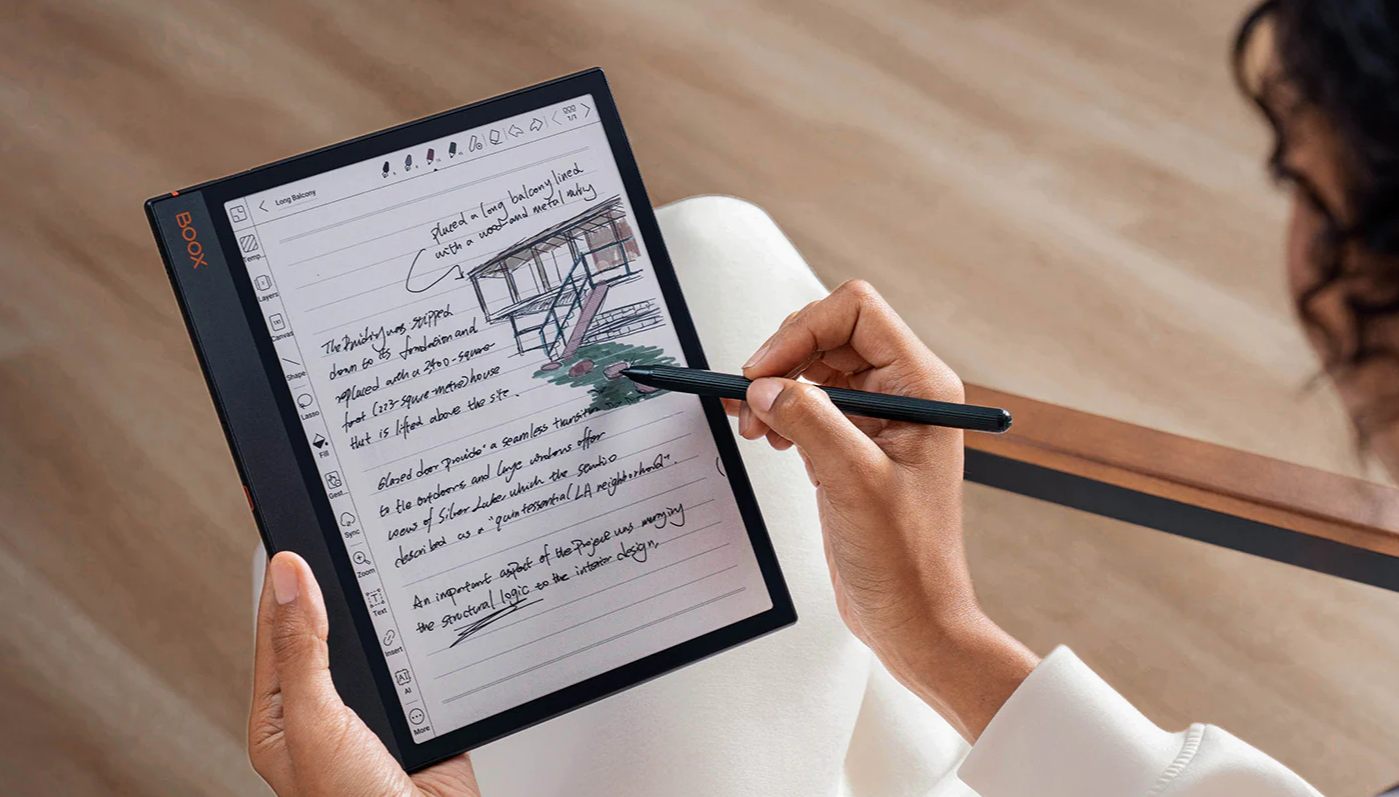 BOOX
Long Balcony
1/1
Temp...
Layers
Canvas
Shape
Lasso
Fill
Gest...
Sync
Zoom
Text
Insert
AI
More
placed a long balcony lined
with a wood and metal
The Building was stripped
down to its foundation and
replaced with a 2,400-square-
foot (223-square-metre) house
that is lifted above the site.
Glazed door provide a seamless transition
to the outdoors and large windows offer
views of Silver Lake which the studio
described as a "quintessential LA neighborhood".
An important aspect of the Project was merging
the structural logic to the interior design,